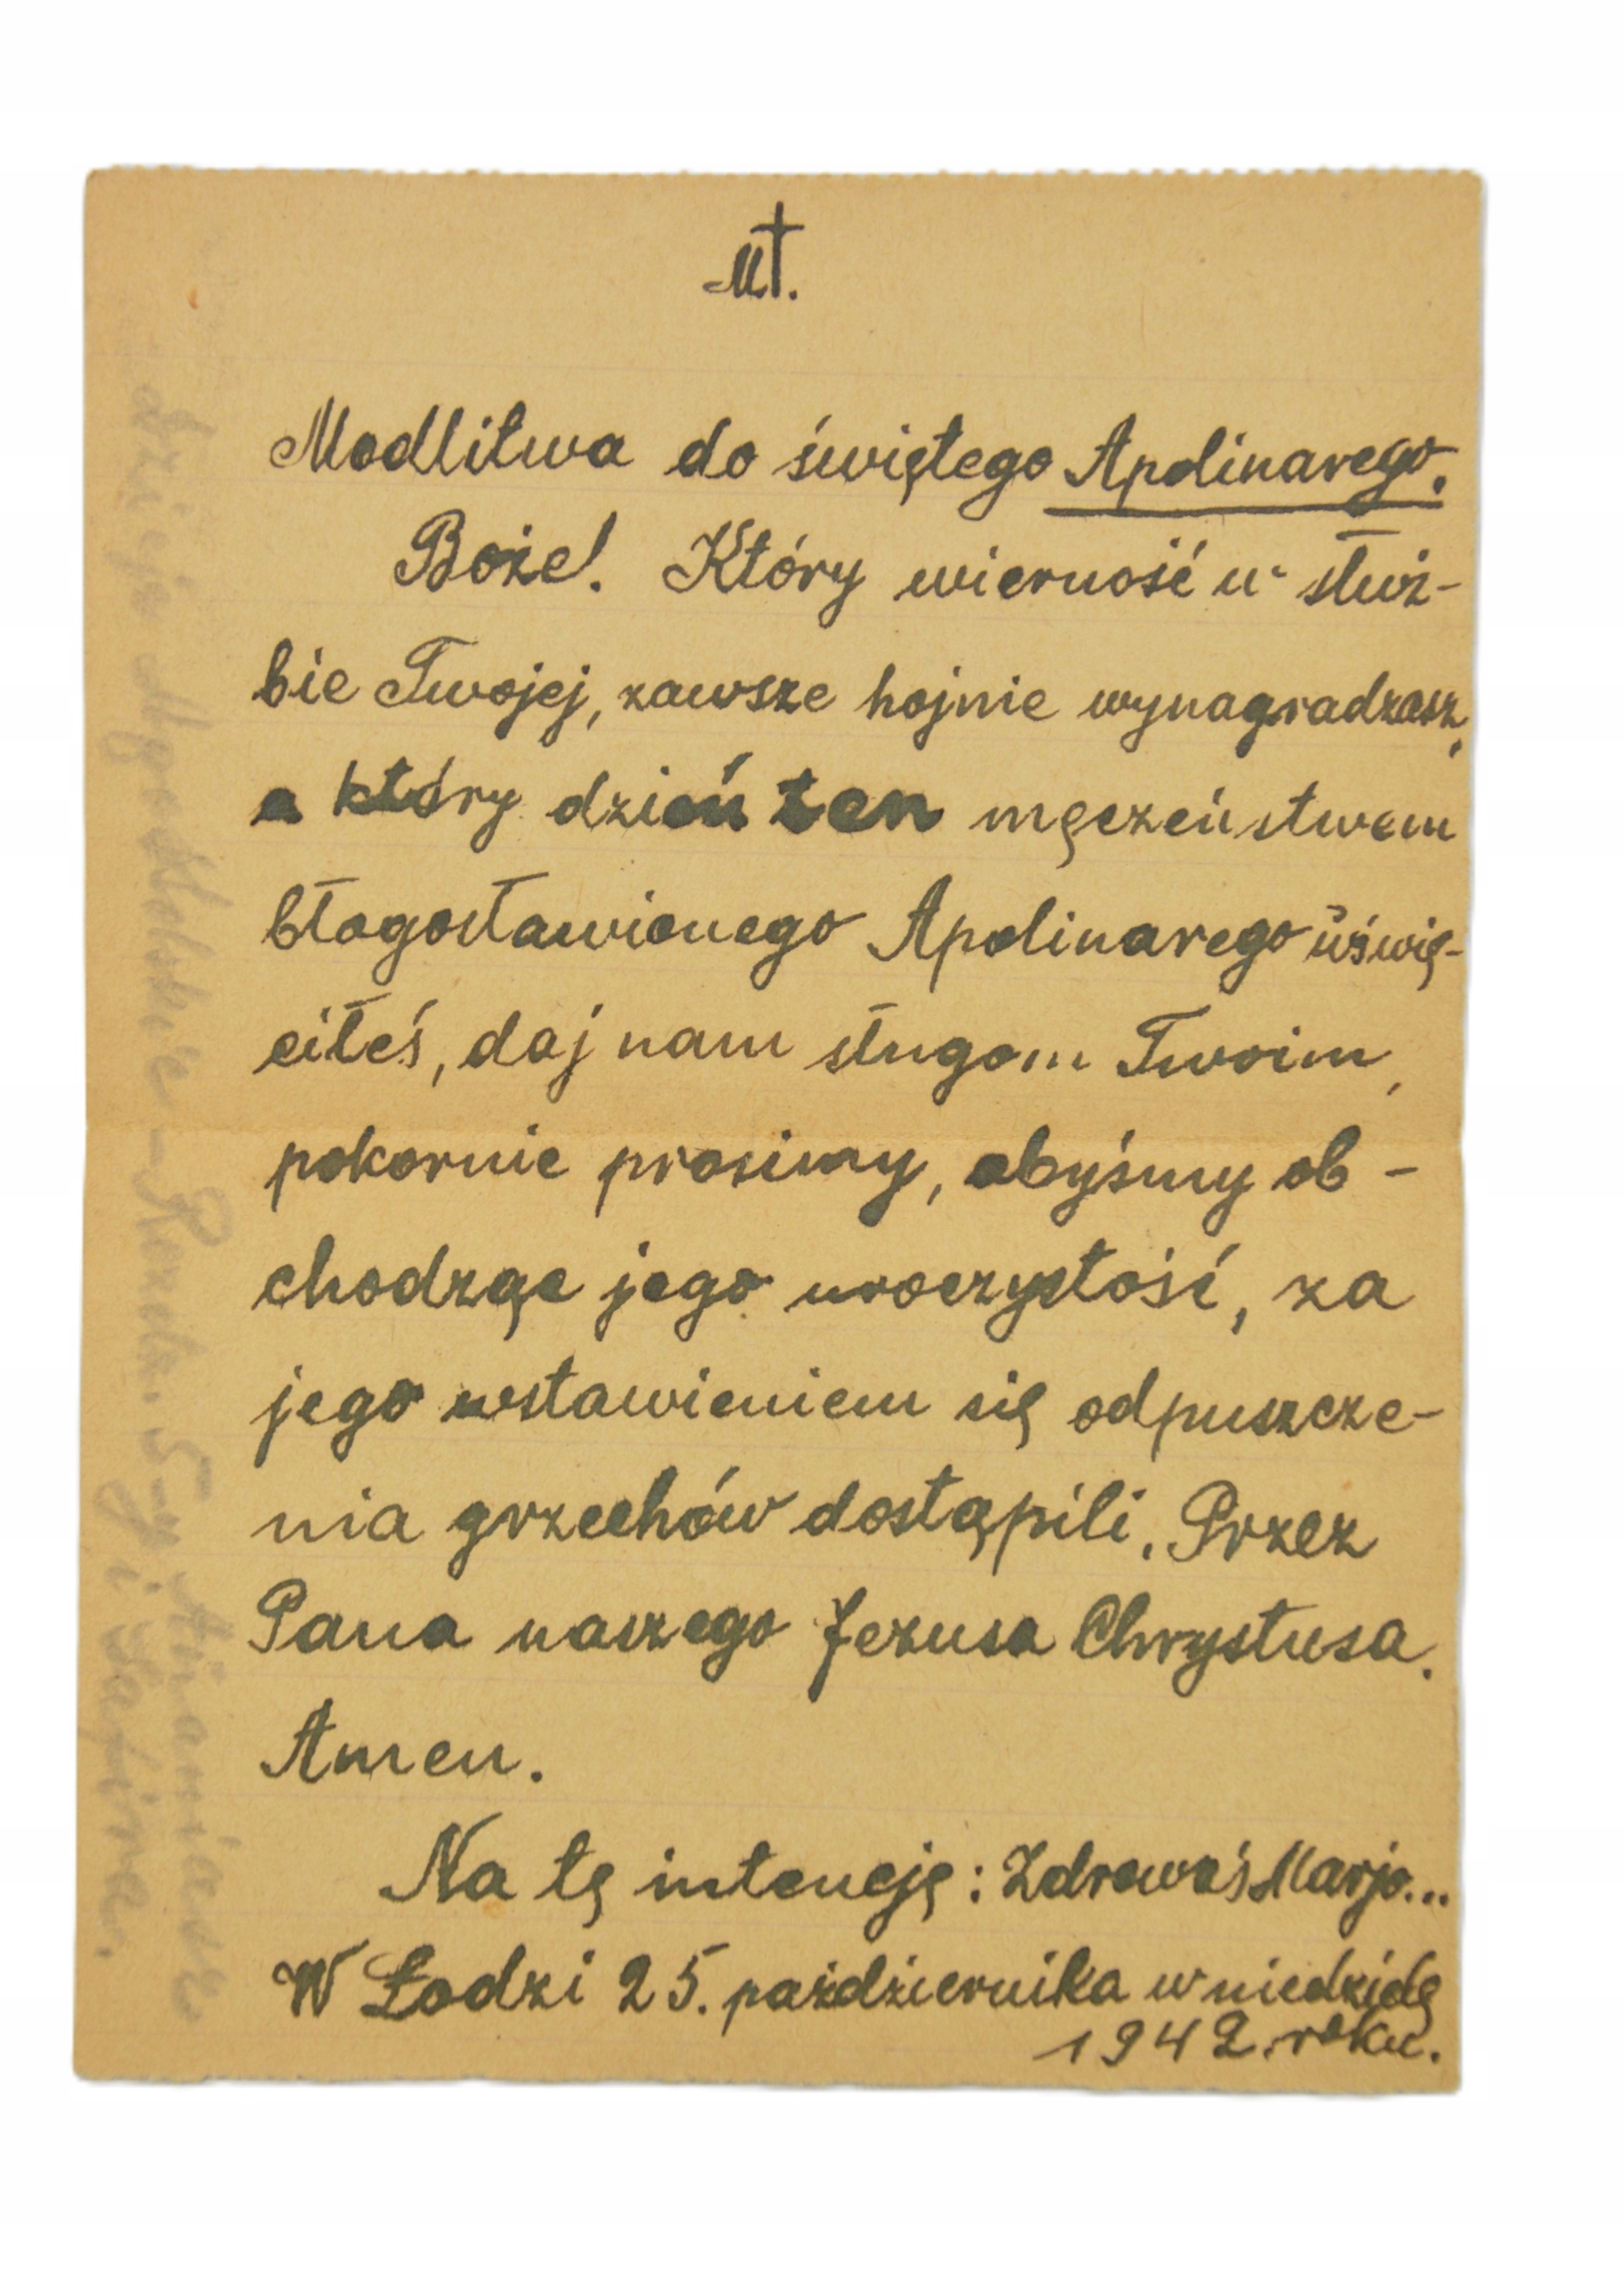 M†.
Modlitwa do świętego Apolinarego.
Boże! Który wierność w służ-
bie Twojej, zawsze hojnie wynagradzasz,
a który dzień ten męczeństwem
błogosławionego Apolinarego uświę-
ciłeś, daj nam sługom Twoim,
pokornie prosimy, abyśmy ob-
chodząc jego uroczystość, za
jego wstawieniem się odpuszcze-
nia grzechów dostąpili. Przez
Pana naszego Jezusa Chrystusa.
Amen.
Na tę intencję: Zdrowaś Marjo...
W Łodzi 25. października w niedzielę
1942 roku.
Dzieje Apostolskie – Rozdz. 5-ty Ananiasz
i Safira.